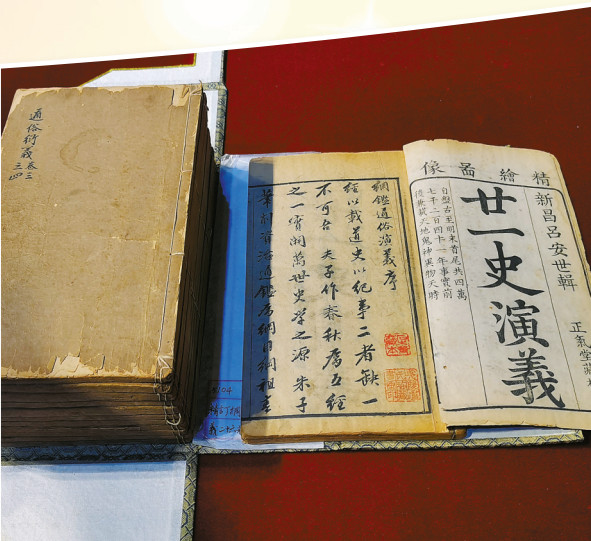 通俗衍義卷三
三四
精繪圖像
新昌呂安世輯
廿一史演義
正氣堂藏
自盤古至明末首尾共四萬
七千二百四十一年事實前
後兼載天地鬼神異物天時
綱鑑通俗演義序
經以載道史以紀事二者缺一
不可台夫子作春秋為五經
之一實開萬世史学之源朱子